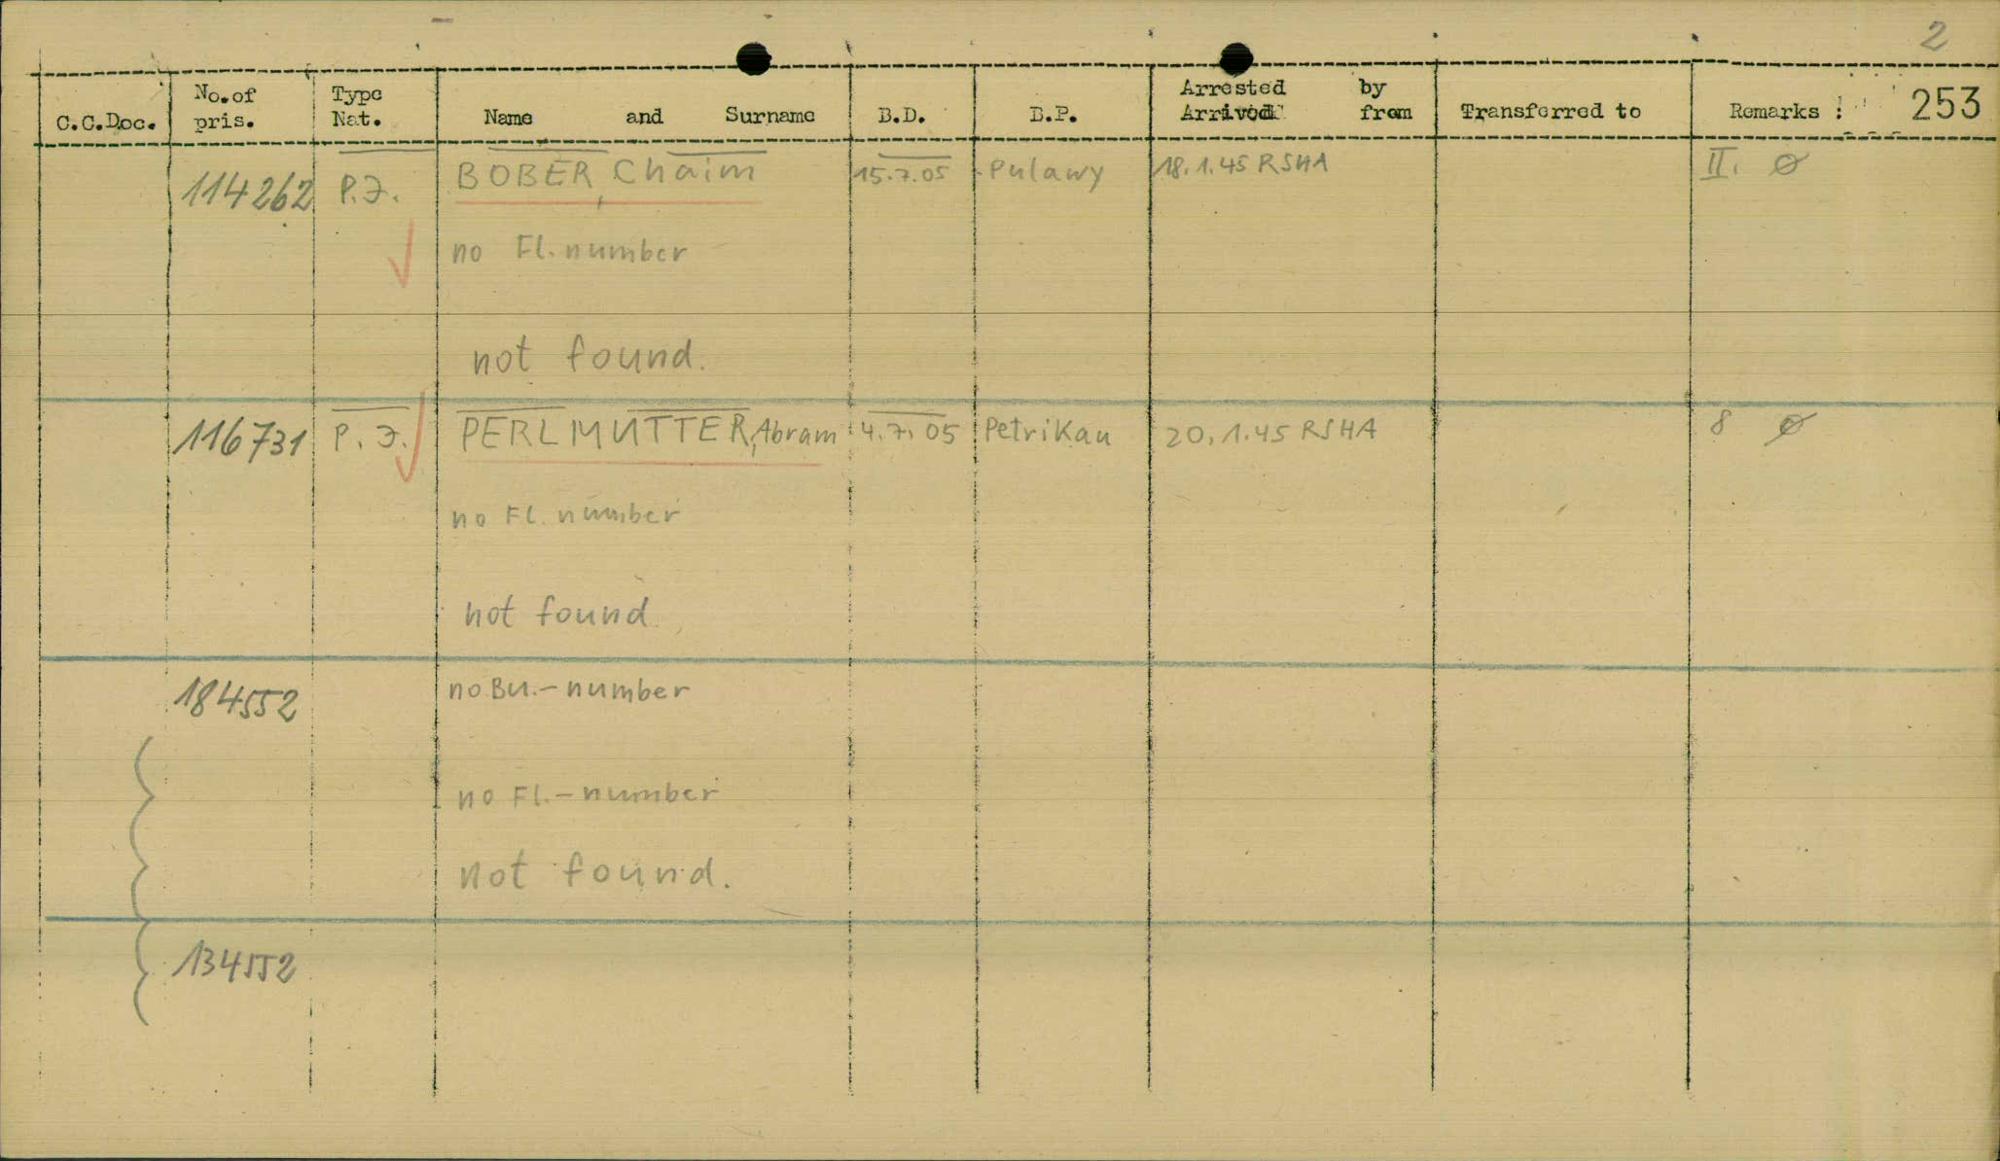 2
C.C.Doc. No.of pris. Type Nat. Name and Surname B.D. B.P. Arrested by Arrived from Transferred to Remarks : 253
114262 P.J. BOBER, Chaim 15.7.05 Pulawy 18.1.45 RSHA II. Ø
no Fl. number
not found.
116731 P.J. PERLMUTTER, Abram 4.7.05 Petrikau 20.1.45 RSHA 8 Ø
no Fl. number
not found
184552 no Bu.-number
no Fl.-number
not found.
134552